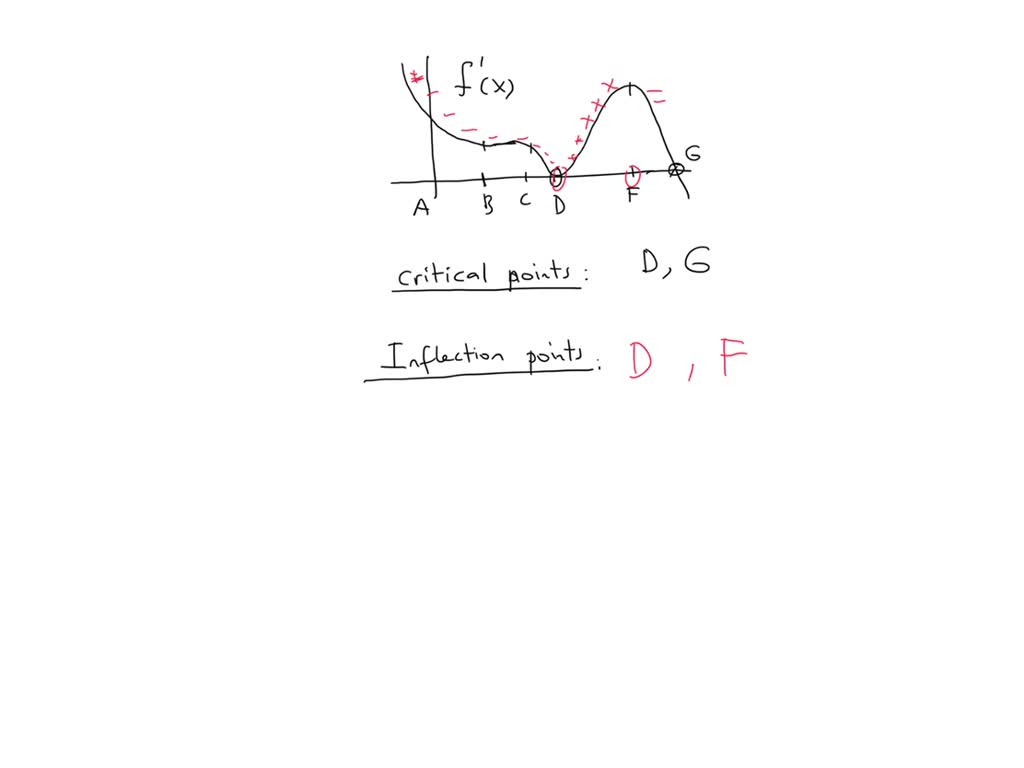 f'(x)
G
A B C D F
critical points: D, G
Inflection points: D , F